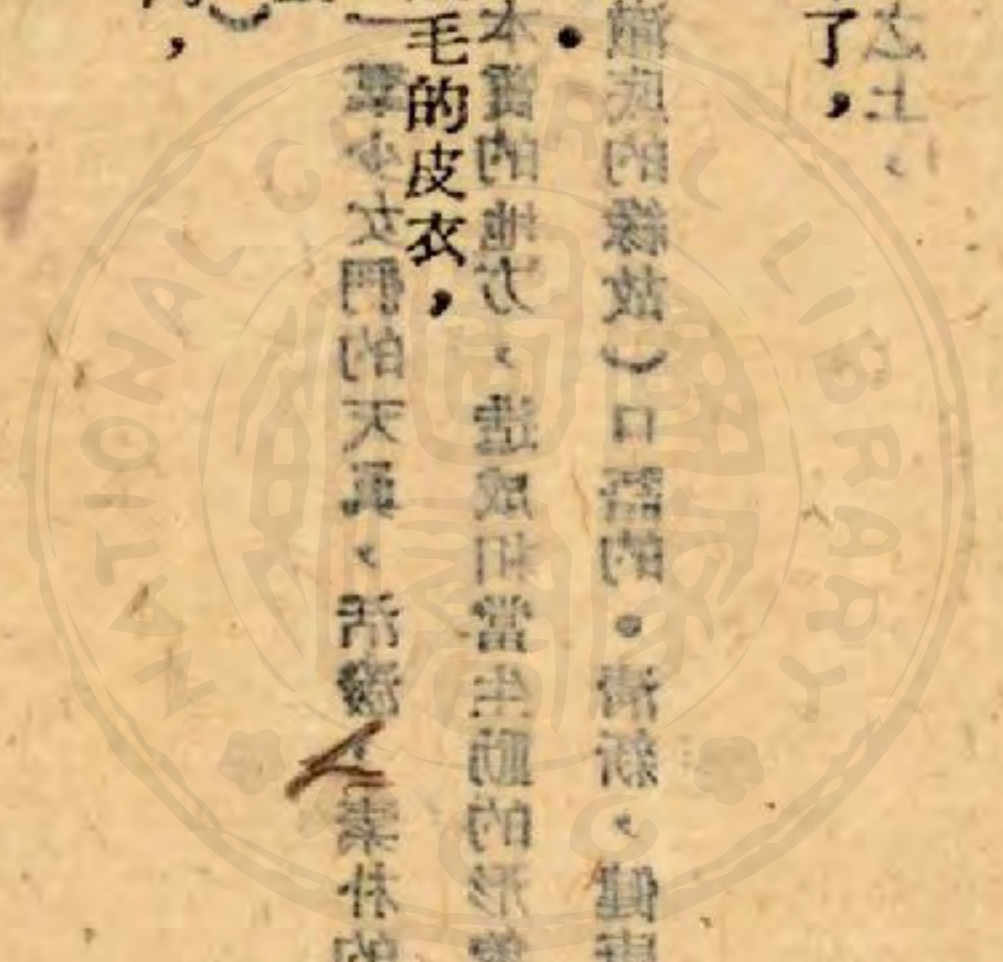 之上，
了，
底的緣故）口語的。清新，健康
本質的地方，造成相當生動的形
毛的皮衣，
少女們的天真，活潑，素朴的
NATIONAL CENTRAL LIBRARY